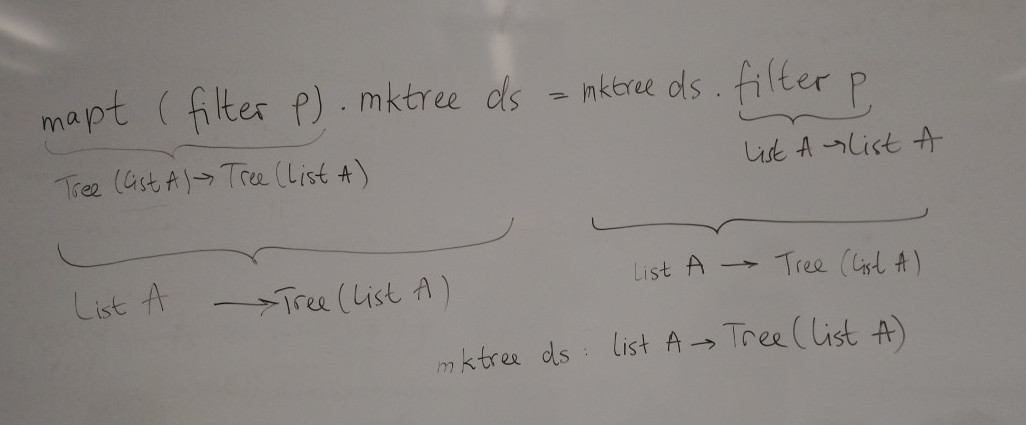 mapt (filter p) . mktree ds = mktree ds . filter p
List A → List A
Tree (List A) → Tree (List A)
List A → Tree (List A)
List A → Tree (List A)
mktree ds : list A → Tree (list A)